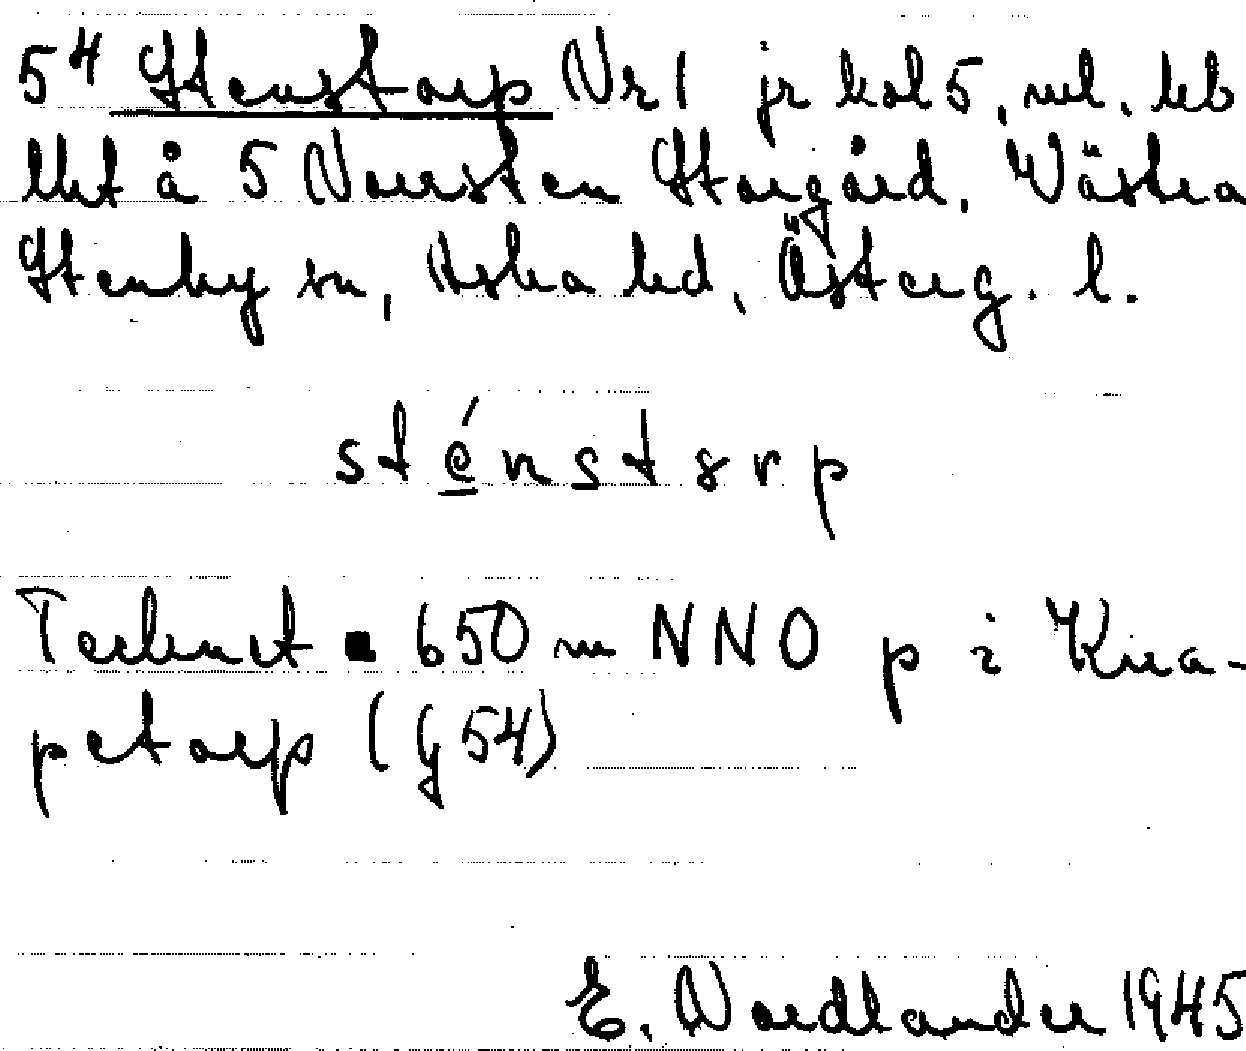 5⁴ Stenstorp Nr 1 jr kol 5, ml. lb
llkt å 5 Norrsten Storgård, Västra
Stenby sn, Aska hd, Österg. l.
sténstɤrp
Tecknet ■ 650 m NNO p i Kna-
petorp (y 54)
E. Nordlander 1945